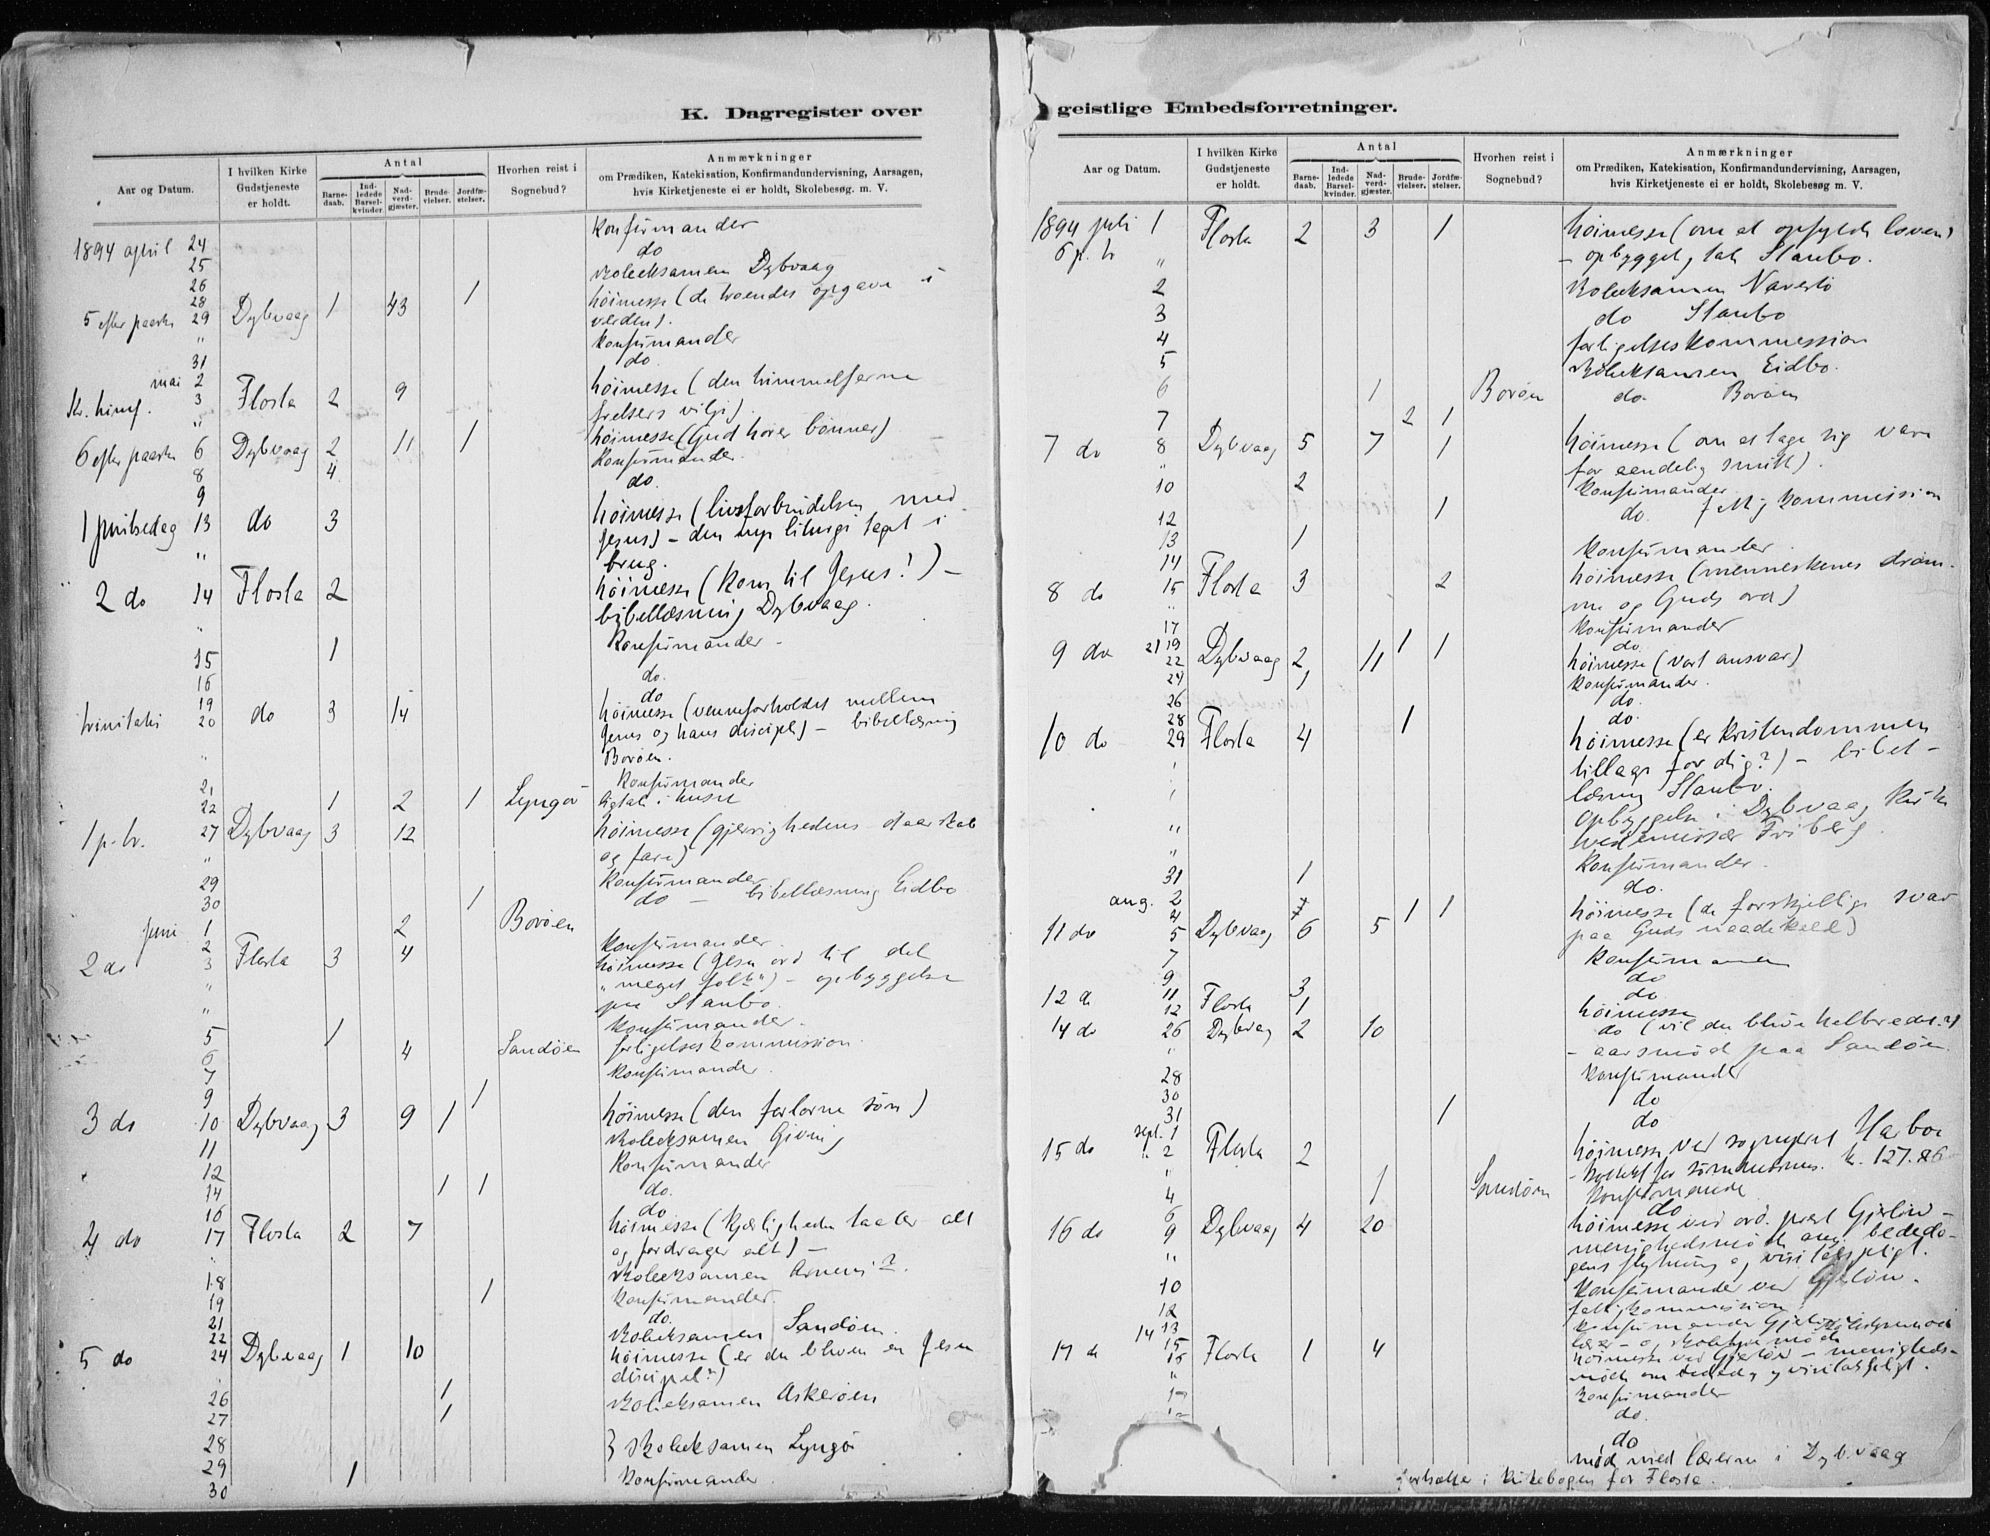 K. Dagregister over
Aar og Datum.
I hvilken Kirke Gudstjeneste er holdt.
Antal
Barnedaab.
Indledede Barselkvinder
Nadverdgjæster.
Brudevielser.
Jordfæstelser.
Hvorhen reist i Sognebud?
Anmærkninger
om Prædiken, Katekisation, Konfirmandundervisning, Aarsagen,
hvis Kirketjeneste ei er holdt, Skolebesøg. m. V.
1894 april 24 konfirmander
25 do
26 skoleeksamen Dybvaag
28 1
5 efter paaske 29 Dybvaag 1 43 höimesse (de troendes opgave i
verden).
" konfirmander
31 do
mai 2
Kr. himf. 3 Flosta 2 9 höimesse (den himmelfarne
frelsers vilje).
6 efter paaske 6 Dybvaag 2 11 1 höimesse (Gud hörer bönner)
8 4 konfirmander
9 do.
1 pintsedag 13 do 3 höimesse (livsforbindelsen med
Jesus) - den nye liturgi taget i
brug.
2 do 14 Flosta 2 höimesse (kom til Jesus!) -
bibellæsning Dybvaag.
15 1 konfirmander
16 do.
19 do
trinitatis 20 do 3 14 höimesse (venneforholdet mellem
Jesus og hans discipel) - bibellæsning
Boröen.
21 konfirmander
22 1 2 1 Lyngör ligtale i huset
1 p. tr. 27 Dybvaag 3 12 höimesse (gjerrighedens daarskab
og fare)
29 konfirmander
30 1 do - bibellæsning Eidbo
juni 1 2 Boröen
2 konfirmander
2 do 3 Flosta 3 4 höimesse (Jesu ord til det
"meget folk") - opbyggelse
paa Staubo.
5 1 konfirmander.
6 4 Sandöen forligelseskommission
7 konfirmander.
9 1
3 do 10 Dybvaag 3 9 1 höimesse (den forlorne sön)
11 skoleeksamen Giving
12 konfirmander
14 1 1 do.
16 do
4 do 17 Flosta 2 7 höimesse (kjærligheden taaler alt
og fordrager alt) -
18 skoleeksamen
19 1 konfirmander
21 do.
22 skoleeksamen Sandöen.
5 do 24 Dybvaag 1 10 höimesse (er du bleven en Jesu
discipel?)
26 1 skoleeksamen Askeröen
27 1
28 } skoleeksamen Lyngör
29
30 1 konfirmander
geistlige Embedsforretninger.
Aar og Datum.
I hvilken Kirke Gudstjeneste er holdt.
Antal
Barnedaab.
Indledede Barselkvinder.
Nadverdgjæster.
Brudevielser.
Jordfæstelser.
Hvorhen reist i Sognebud?
Anmærkninger
om Prædiken, Katekisation, Konfirmandundervisning, Aarsagen,
hvis Kirketjeneste ei er holdt, Skolebesøg m. V.
1894 juli 1 Flosta 2 3 1 höimesse (om at opfylde loven)
6 p. tr. " - opbyggel. Staubo.
2 skoleeksamen Navestö
3 do Staubo
4 forligelseskommission
5 skoleeksamen Eidbo.
6 1 Boröen do. Boröen
7 2 1
7 do 8 Dybvaag 5 7 1 höimesse (om at tage sig vare
for aandelig smitte).
10 2 konfirmander
12 1 do. fattigkommission
13 1
14 konfirmander
8 do 15 Flosta 3 2 höimesse (menneskenes dröm-
me og Guds ord)
17 konfirmander
19 1 do.
9 do 21 22 Dybvaag 2 11 1 höimesse (vort ansvar)
24 1 konfirmander.
26 do.
28 1 do.
10 do 29 Flosta 4 höimesse (er kristendommen
tillags for dig?) - bibel-
læsning Staubo.
" Opbyggelse i Dybvaag kirke
ved emissær Friberg.
" konfirmander
31 1 do.
aug. 2
4 1 1
11 do 5 Dybvaag 6 5 höimesse (de forskjellige svar
paa Guds naadekald)
7 konfirmander
9 3 do
11 do
12 do 12 Flosta 1 höimesse
14 do 26 Dybvaag 2 10 do (vil du blive helbredet?)
- aarsmöde paa Sandöen.
28 konfirmander
30 do
31 1 do
sept. 1
15 do 2 Flosta 2 höimesse ved sogneprest Harboe
- kollekt for sömandsmis. kr. 127.86
4 1 Sandöen konfirmander
6 do
16 do 9 Dybvaag 4 20 höimesse ved ord. prest Gjerlöw -
menighedsmöde ang. bededa-
gens flytning og visitatspligt.
10 konfirmander ved Gjerlöw.
12 fattigkommission
13 14
17 do 15 16 Flosta 1 4 höimesse ved Gjerlöw - menigheds-
möde om bededag og visitatspligt.
konfirmander
do.
do
möde med lærerne i Dybvaag
fortsættes i kirkebogen for Flosta.